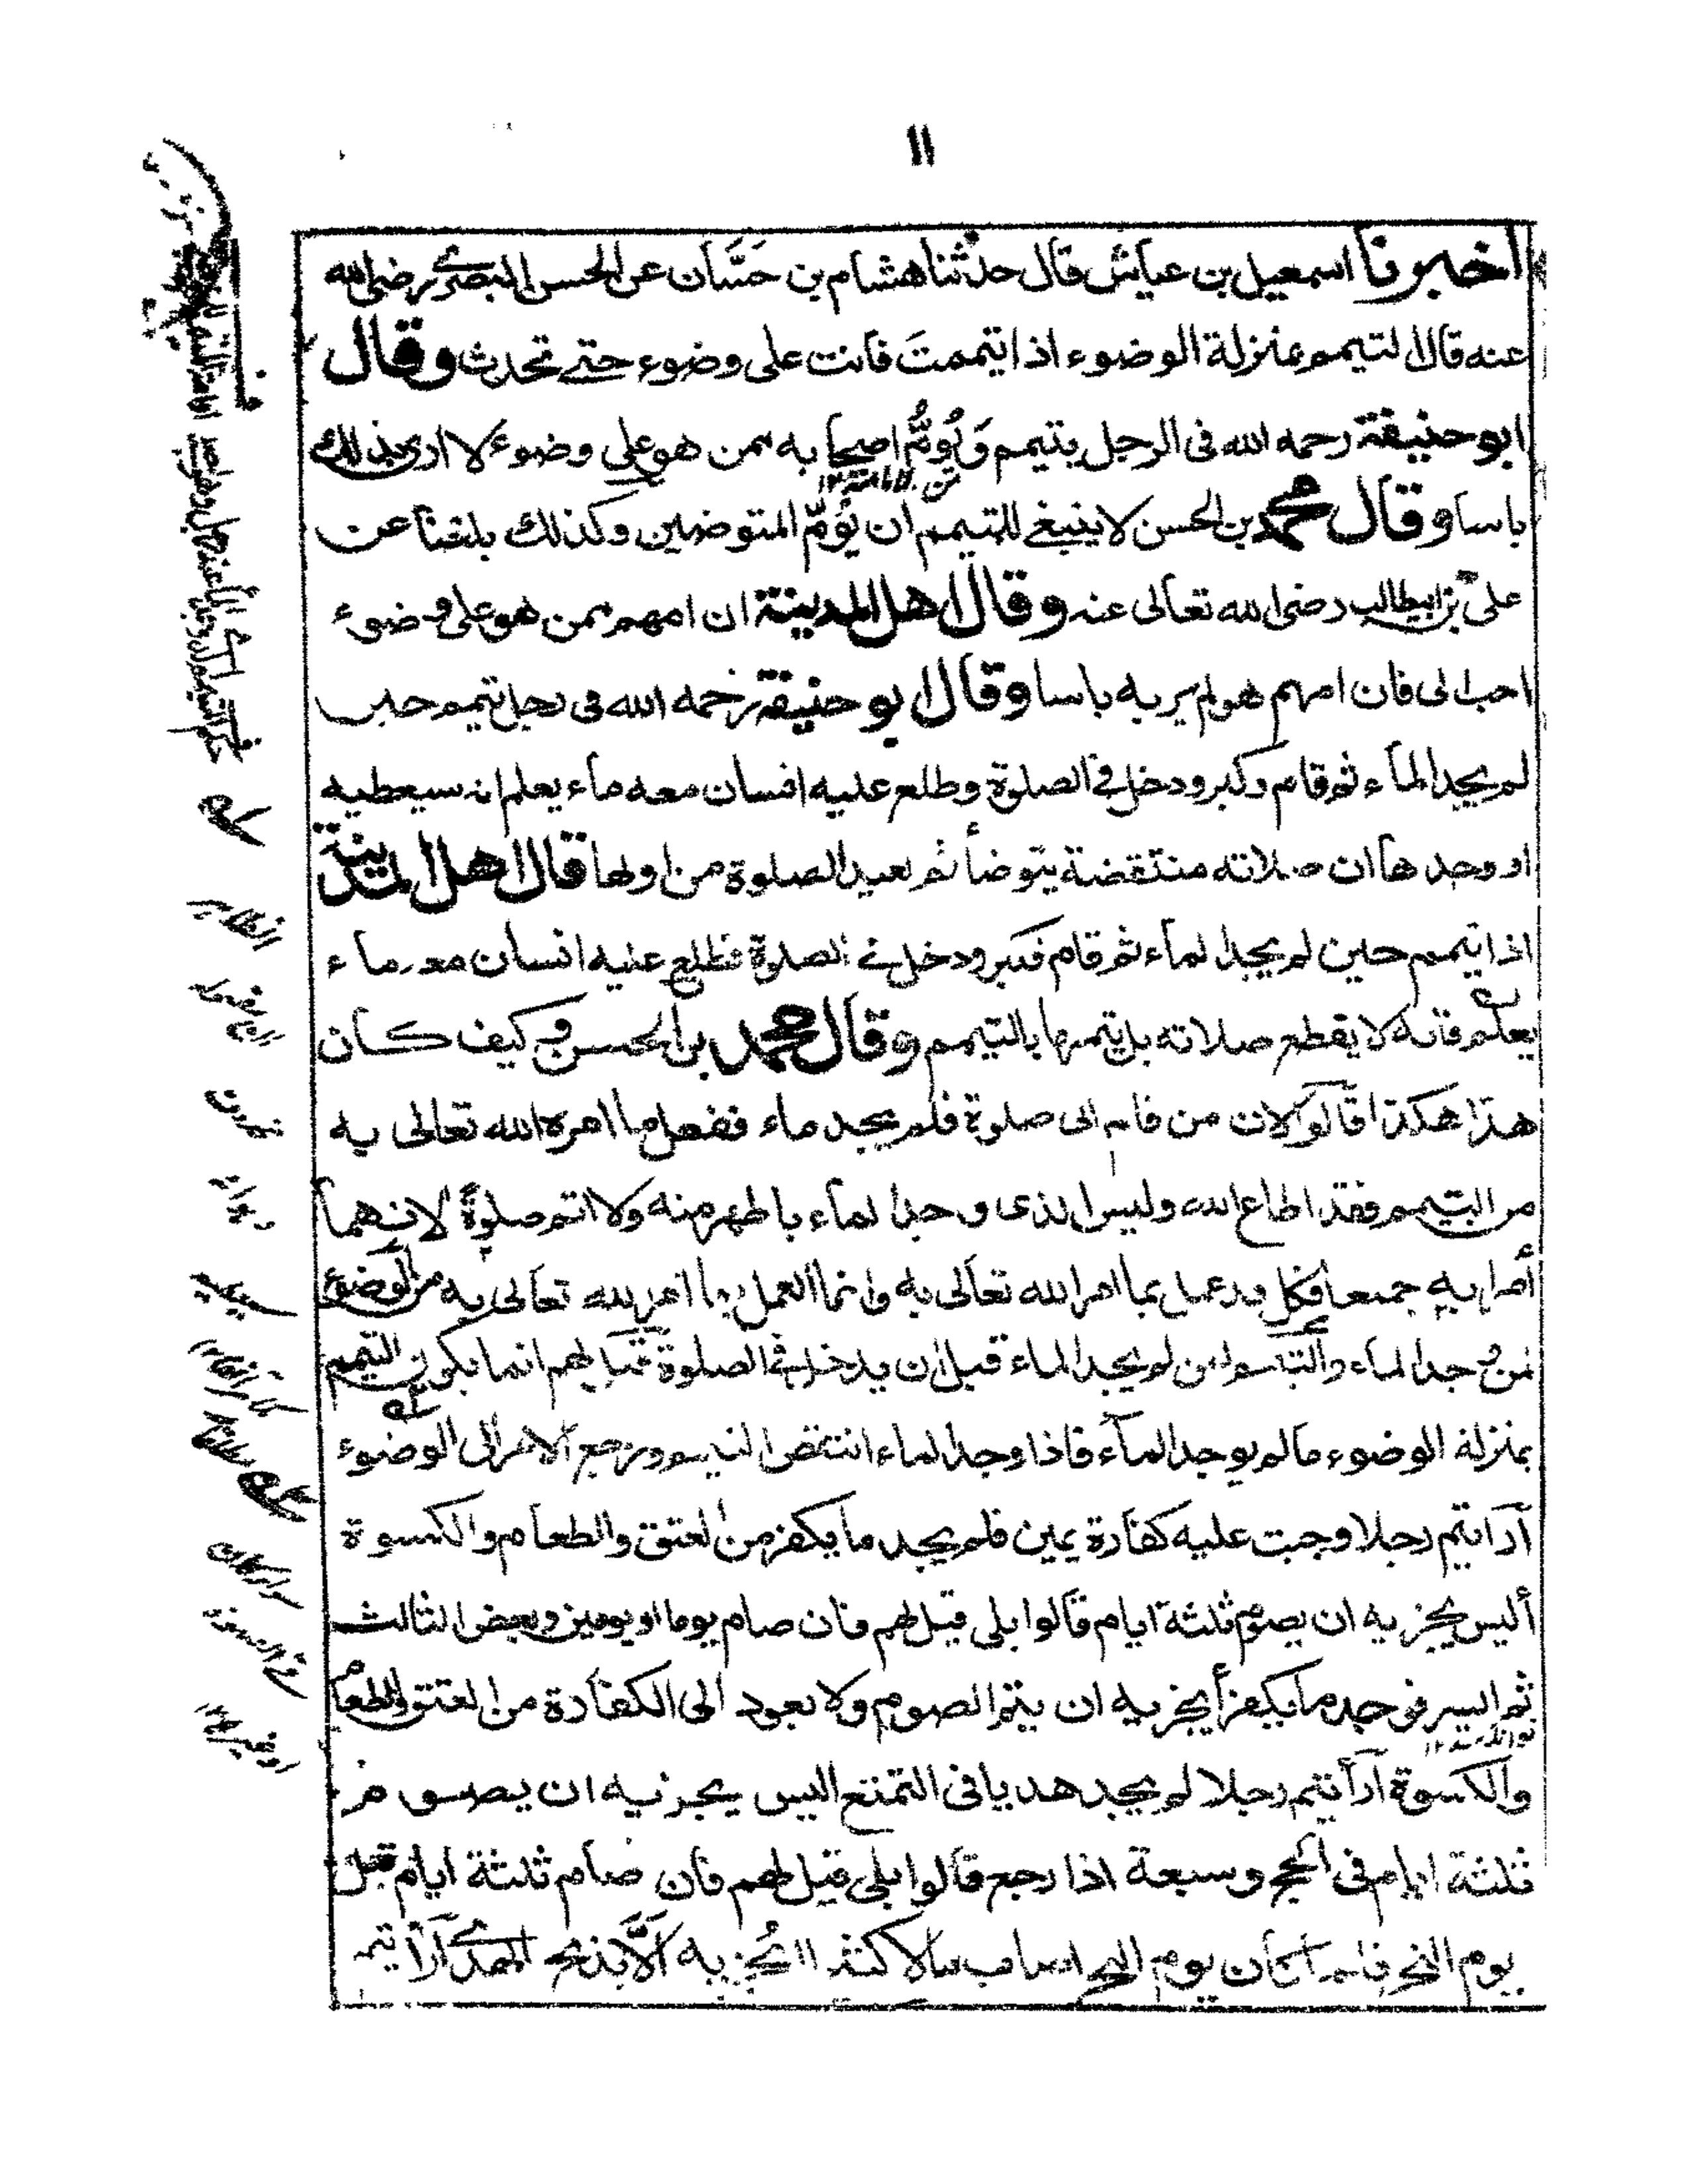 ١١
اخبرنا اسمعيل بن عياش قال حدثنا هشام بن حَسَّان عن الحسن البصرى رضى الله
عنه قال التيمم بمنزلة الوضوء اذا تيممتَ فانت على وضوء حتى تحدث وقال
ابو حنيفة رحمه الله فى الرجل يتيمم وَيُؤمُّ اصحابه ممن هو على وضوء لا ارى بذلك
باسا وقال محمد بن الحسن لا ينبغى للمتيمم ان يؤمّ المتوضئين وكذلك بلغنا عن
على بن ابيطالب رضى الله تعالى عنه وقال اهل المدينة ان امهم ممن هو على وضوء
احب الى فان امهم هو لم ير به باسا وقال ابو حنيفة رحمه الله فى رجل تيمم حين
لم يجد الماء ثم قام وكبر ودخل فى الصلوة وطلع عليه انسان معه ماء يعلم انه سيعطيه
او وجدها ان صلاته منتقضة يتوضأ ثم يعيد الصلوة من اولها قال اهل المدينة
اذا تيمم حين لم يجد الماء ثم قام فكبر ودخل فى الصلوة فطلع عليه انسان معه ماء
يعلم فانه لا يقطع صلاته بل يتمها بالتيمم وقال محمد بن الحسن وكيف كان
هذا هكذا قالوا لان من قام الى صلوة فلم يجد ماء ففعل ما امره الله تعالى به
من التيمم فقد اطاع الله وليس الذى وجد الماء باطهر منه ولا اتم صلوةً لانهما
أمرا به جميعا فكل قد عمل بما امر الله تعالى به وانما العمل بما امر الله تعالى به من الوضوء
لمن وجد الماء والتيمم لمن لم يجد الماء قبل ان يدخل فى الصلوة قيل لهم انما يكون التيمم
بمنزلة الوضوء ما لم يوجد الماء فاذا وجد الماء انتقض التيمم ورجع الامر الى الوضوء
أرايتم رجلا وجبت عليه كفارة يمين فلم يجد ما يكفر من العتق والطعام والكسوة
أليس يجزيه ان يصوم ثلثة ايام قالوا بلى قيل لهم فان صام يوما او يومين وبعض الثالث
ثم ايسر فوجد ما يكفر أيجزيه ان يتم الصوم ولا يعود الى الكفارة من العتق والطعام
والكسوة أرأيتم رجلا لم يجد هديا فى التمتع اليس يجزيه ان يصوم
ثلثة ايام فى الحج وسبعة اذا رجع قالوا بلى قيل لهم فان صام ثلثة ايام قبل
يوم النحر فلما كان يوم النحر اصاب مالا كثيرا أيُجزيه ألّا يذبح الهدى أرأيتم